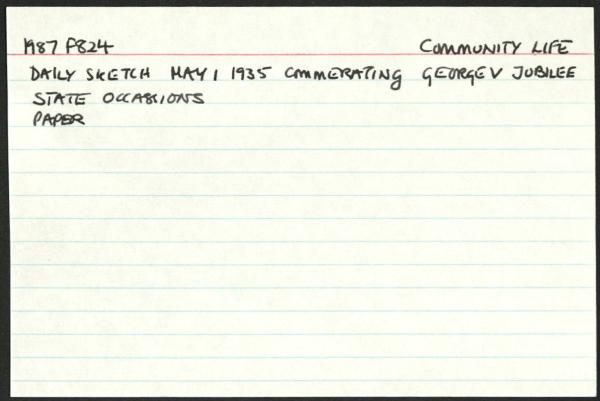 1987 P824 COMMUNITY LIFE
DAILY SKETCH MAY 1 1935 COMMERATING GEORGE V JUBILEE
STATE OCCASSIONS
PAPER